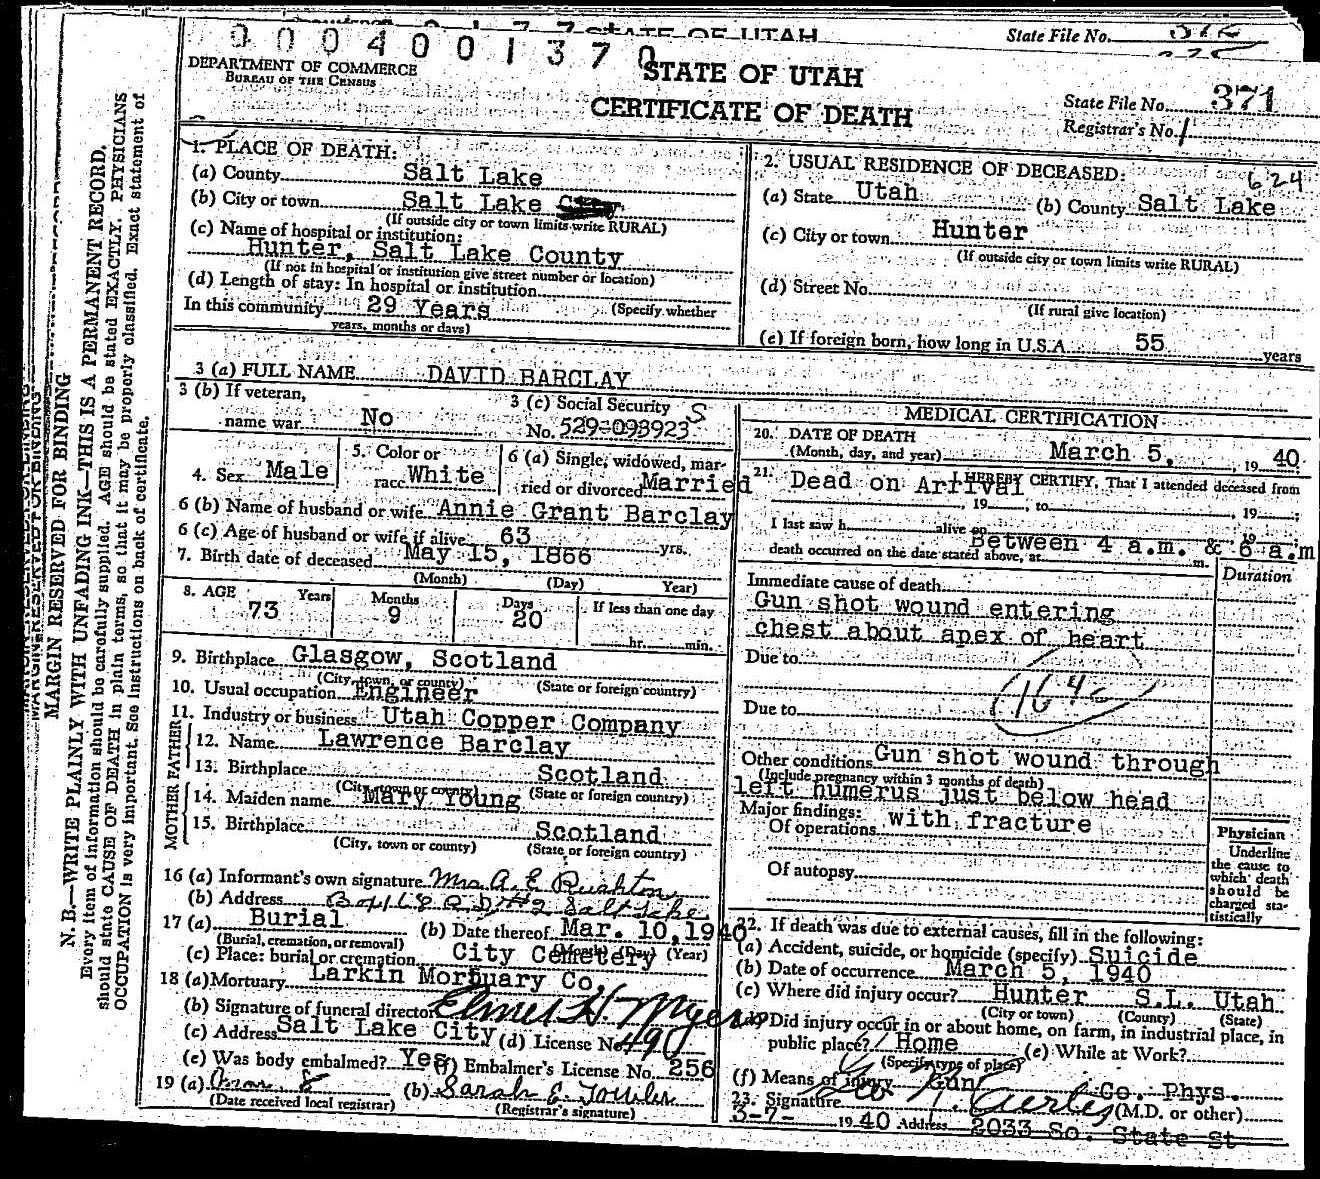 0004001370
STATE OF UTAH
State File No.
DEPARTMENT OF COMMERCE
BUREAU OF THE CENSUS
STATE OF UTAH
CERTIFICATE OF DEATH
State File No. 371
Registrar's No. 1
MARGIN RESERVED FOR BINDING
N. B.—WRITE PLAINLY WITH UNFADING INK—THIS IS A PERMANENT RECORD.
Every item of information should be carefully supplied. AGE should be stated EXACTLY. PHYSICIANS
should state CAUSE OF DEATH in plain terms, so that it may be properly classified. Exact statement of
OCCUPATION is very important. See instructions on back of certificate.
1. PLACE OF DEATH:
(a) County Salt Lake
(b) City or town Salt Lake
(If outside city or town limits write RURAL)
(c) Name of hospital or institution:
Hunter, Salt Lake County
(If not in hospital or institution give street number or location)
(d) Length of stay: In hospital or institution
In this community 29 Years (Specify whether
years, months or days)
2. USUAL RESIDENCE OF DECEASED:
624
(a) State Utah (b) County Salt Lake
(c) City or town Hunter
(If outside city or town limits write RURAL)
(d) Street No.
(If rural give location)
(e) If foreign born, how long in U.S.A. 55 years
3 (a) FULL NAME DAVID BARCLAY
3 (b) If veteran,
name war. No
3 (c) Social Security S
No. 529-093923
4. Sex Male
5. Color or
race White
6 (a) Single, widowed, mar-
ried or divorced Married
6 (b) Name of husband or wife Annie Grant Barclay
6 (c) Age of husband or wife if alive 63 yrs.
7. Birth date of deceased May 15, 1866
(Month) (Day) Year)
8. AGE Years Months Days If less than one day
73 9 20
hr. min.
9. Birthplace Glasgow, Scotland
(City, town, or county) (State or foreign country)
10. Usual occupation Engineer
11. Industry or business Utah Copper Company
FATHER
12. Name Lawrence Barclay
13. Birthplace Scotland
(City, town or county) (State or foreign country)
MOTHER
14. Maiden name Mary Young
15. Birthplace Scotland
(City, town or county) (State or foreign country)
16 (a) Informant's own signature Mrs A. E. Rushton
(b) Address Box 168 R D #2 Salt Lake
17 (a) Burial (b) Date thereof Mar. 10, 1940
(Burial, cremation, or removal) (Month) (Day) (Year)
(c) Place: burial or cremation City Cemetery
18 (a) Mortuary Larkin Mortuary Co.
(b) Signature of funeral director Elmer H. Myers
(c) Address Salt Lake City (d) License No. 490
(e) Was body embalmed? Yes (f) Embalmer's License No. 256
19 (a) Mar. 8 (b) Sarah E. Fowler
(Date received local registrar) (Registrar's signature)
MEDICAL CERTIFICATION
20. DATE OF DEATH
(Month, day, and year) March 5, 1940
21. I HEREBY CERTIFY, That I attended deceased from
Dead on Arrival
, 19 , to , 19 ;
I last saw h alive on , 19 ;
death occurred on the date stated above, at Between 4 a.m. & 6 a.m
Duration
Immediate cause of death
Gun shot wound entering
chest about apex of heart
Due to
164c
Due to
Other conditions Gun shot wound through
(Include pregnancy within 3 months of death)
left humerus just below head
Major findings: with fracture
Of operations
Of autopsy
Physician
Underline
the cause to
which death
should be
charged sta-
tistically
22. If death was due to external causes, fill in the following:
(a) Accident, suicide, or homicide (specify) Suicide
(b) Date of occurrence March 5, 1940
(c) Where did injury occur? Hunter S.L. Utah
(City or town) (County) (State)
(d) Did injury occur in or about home, on farm, in industrial place, in
public place? Home (e) While at Work?
(Specify type of place)
(f) Means of injury Gun Co. Phys.
23. Signature Geo N. Curtis (M.D. or other)
3-7- 1940 Address 2033 So. State St